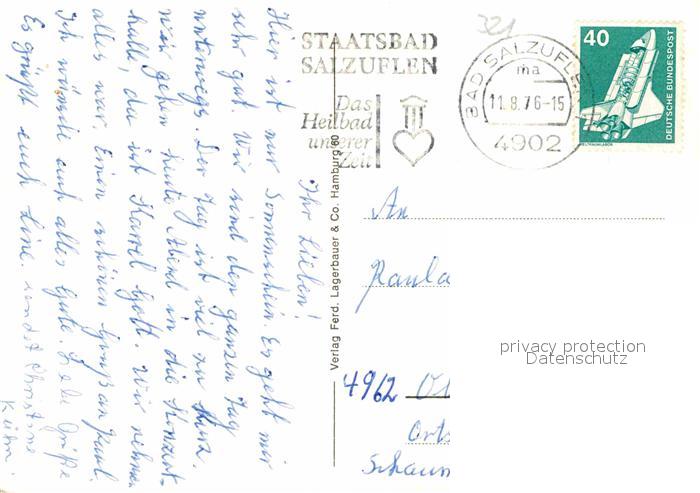 Ihr Lieben!
Hier ist nur Sonnenschein. Es geht mir
sehr gut. Wir sind den ganzen Tag
unterwegs. Der Tag ist viel zu kurz.
Wir gehen heute Abend in die Konzert-
halle, da ist Karel Gott. Wir nehmen
alles war. Einen schönen Gruß an Paul.
Ich wünsche euch alles Gute. Viele Grüße
Es grüßt euch Eine. sendet Christine
STAATSBAD
SALZUFLEN
Das
Heilbad
unserer
Zeit
321
BAD SALZUFLE
ma
11.8.76-15
4902
40
DEUTSCHE BUNDESPOST
WELTRAUMLABOR
Verlag Ferd. Lagerbauer & Co. Hamburg 60
An
Paula
4962
Orts
Schaum
privacy protection
Datenschutz